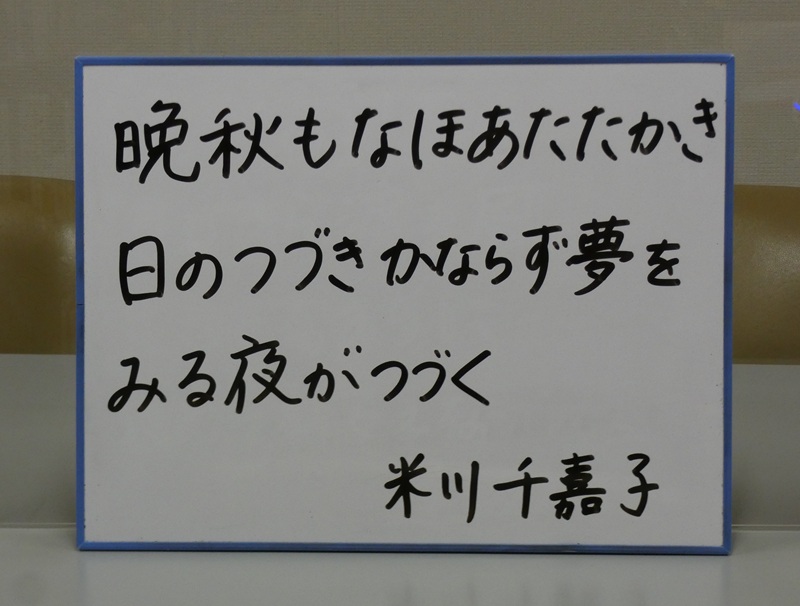 晩秋もなほあたたかき
日のつづきかならず夢を
みる夜がつづく
米川千嘉子